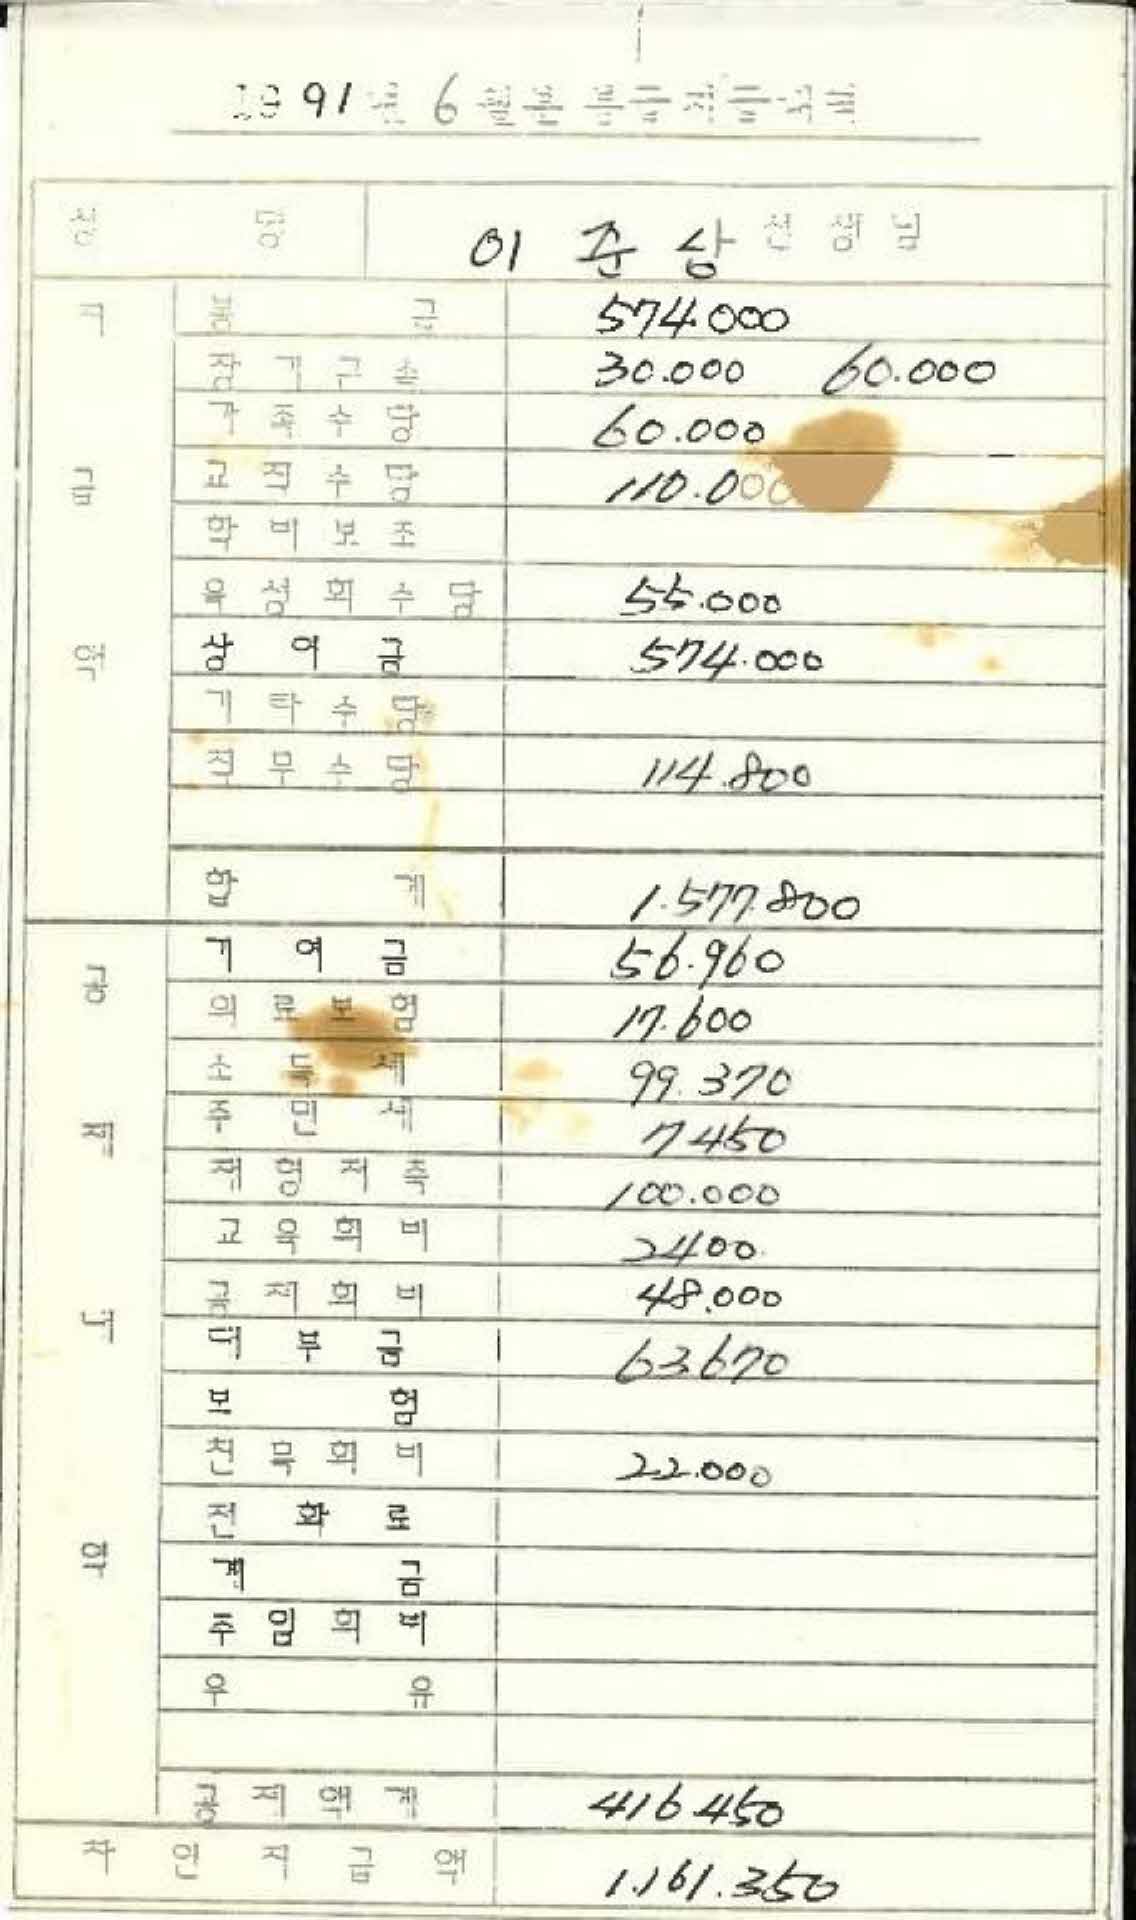 19 91 년 6 월분 봉급지급명세표
성 명 이 준 상 선생님
지 급 액
봉 급 574.000
장 기 근 속 30.000 60.000
가 족 수 당 60.000
교 직 수 당 110.000
학 비 보 조
육 성 회 수 당 55.000
상 여 금 574.000
기 타 수 당
직 무 수 당 114.800
합 계 1.577.800
공 제 내 역
기 여 금 56.960
의 료 보 험 17.600
소 득 세 99.370
주 민 세 7450
저 축 100.000
교 육 회 비 2400
공 제 회 비 48.000
대 부 금 63.670
보 험
친 목 회 비 22.000
전 화 료
계 금
주 임 회 비
우 유
공 제 액 계 416.450
차 인 지 급 액 1.161.350